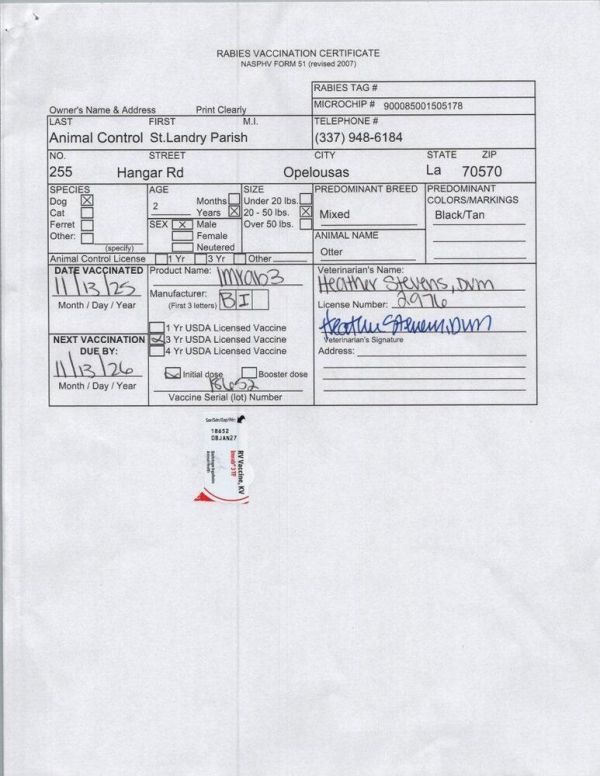 RABIES VACCINATION CERTIFICATE
NASPHV FORM 51 (revised 2007)
RABIES TAG #
Owner's Name & Address Print Clearly
MICROCHIP # 900085001505178
LAST FIRST M.I.
TELEPHONE #
Animal Control St.Landry Parish
(337) 948-6184
NO. STREET CITY STATE ZIP
255 Hangar Rd Opelousas La 70570
SPECIES
Dog X
Cat
Ferret
Other:
(specify)
AGE
2
Months
Years X
SEX X Male
Female
Neutered
SIZE
Under 20 lbs.
20 - 50 lbs. X
Over 50 lbs.
PREDOMINANT BREED
Mixed
ANIMAL NAME
Otter
PREDOMINANT
COLORS/MARKINGS
Black/Tan
Animal Control License 1 Yr 3 Yr Other
DATE VACCINATED
11/13/25
Month / Day / Year
NEXT VACCINATION
DUE BY:
11/13/26
Month / Day / Year
Product Name: Imrab3
Manufacturer: BI
(First 3 letters)
1 Yr USDA Licensed Vaccine
3 Yr USDA Licensed Vaccine
4 Yr USDA Licensed Vaccine
Initial dose Booster dose
18652
Vaccine Serial (lot) Number
Veterinarian's Name:
Heather Stevens, DVM
License Number: 2976
Heather Stevens, DVM
Veterinarian's Signature
Address:
18652
08JAN27
RV Vaccine, KV
Imrab® 3 TF